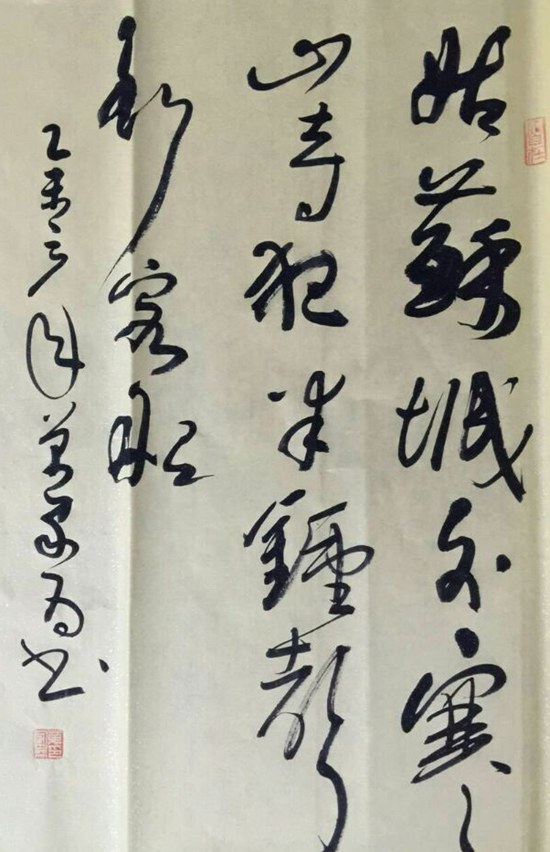 姑蘇城外寒
山寺夜半鐘聲
到客船
乙未年書